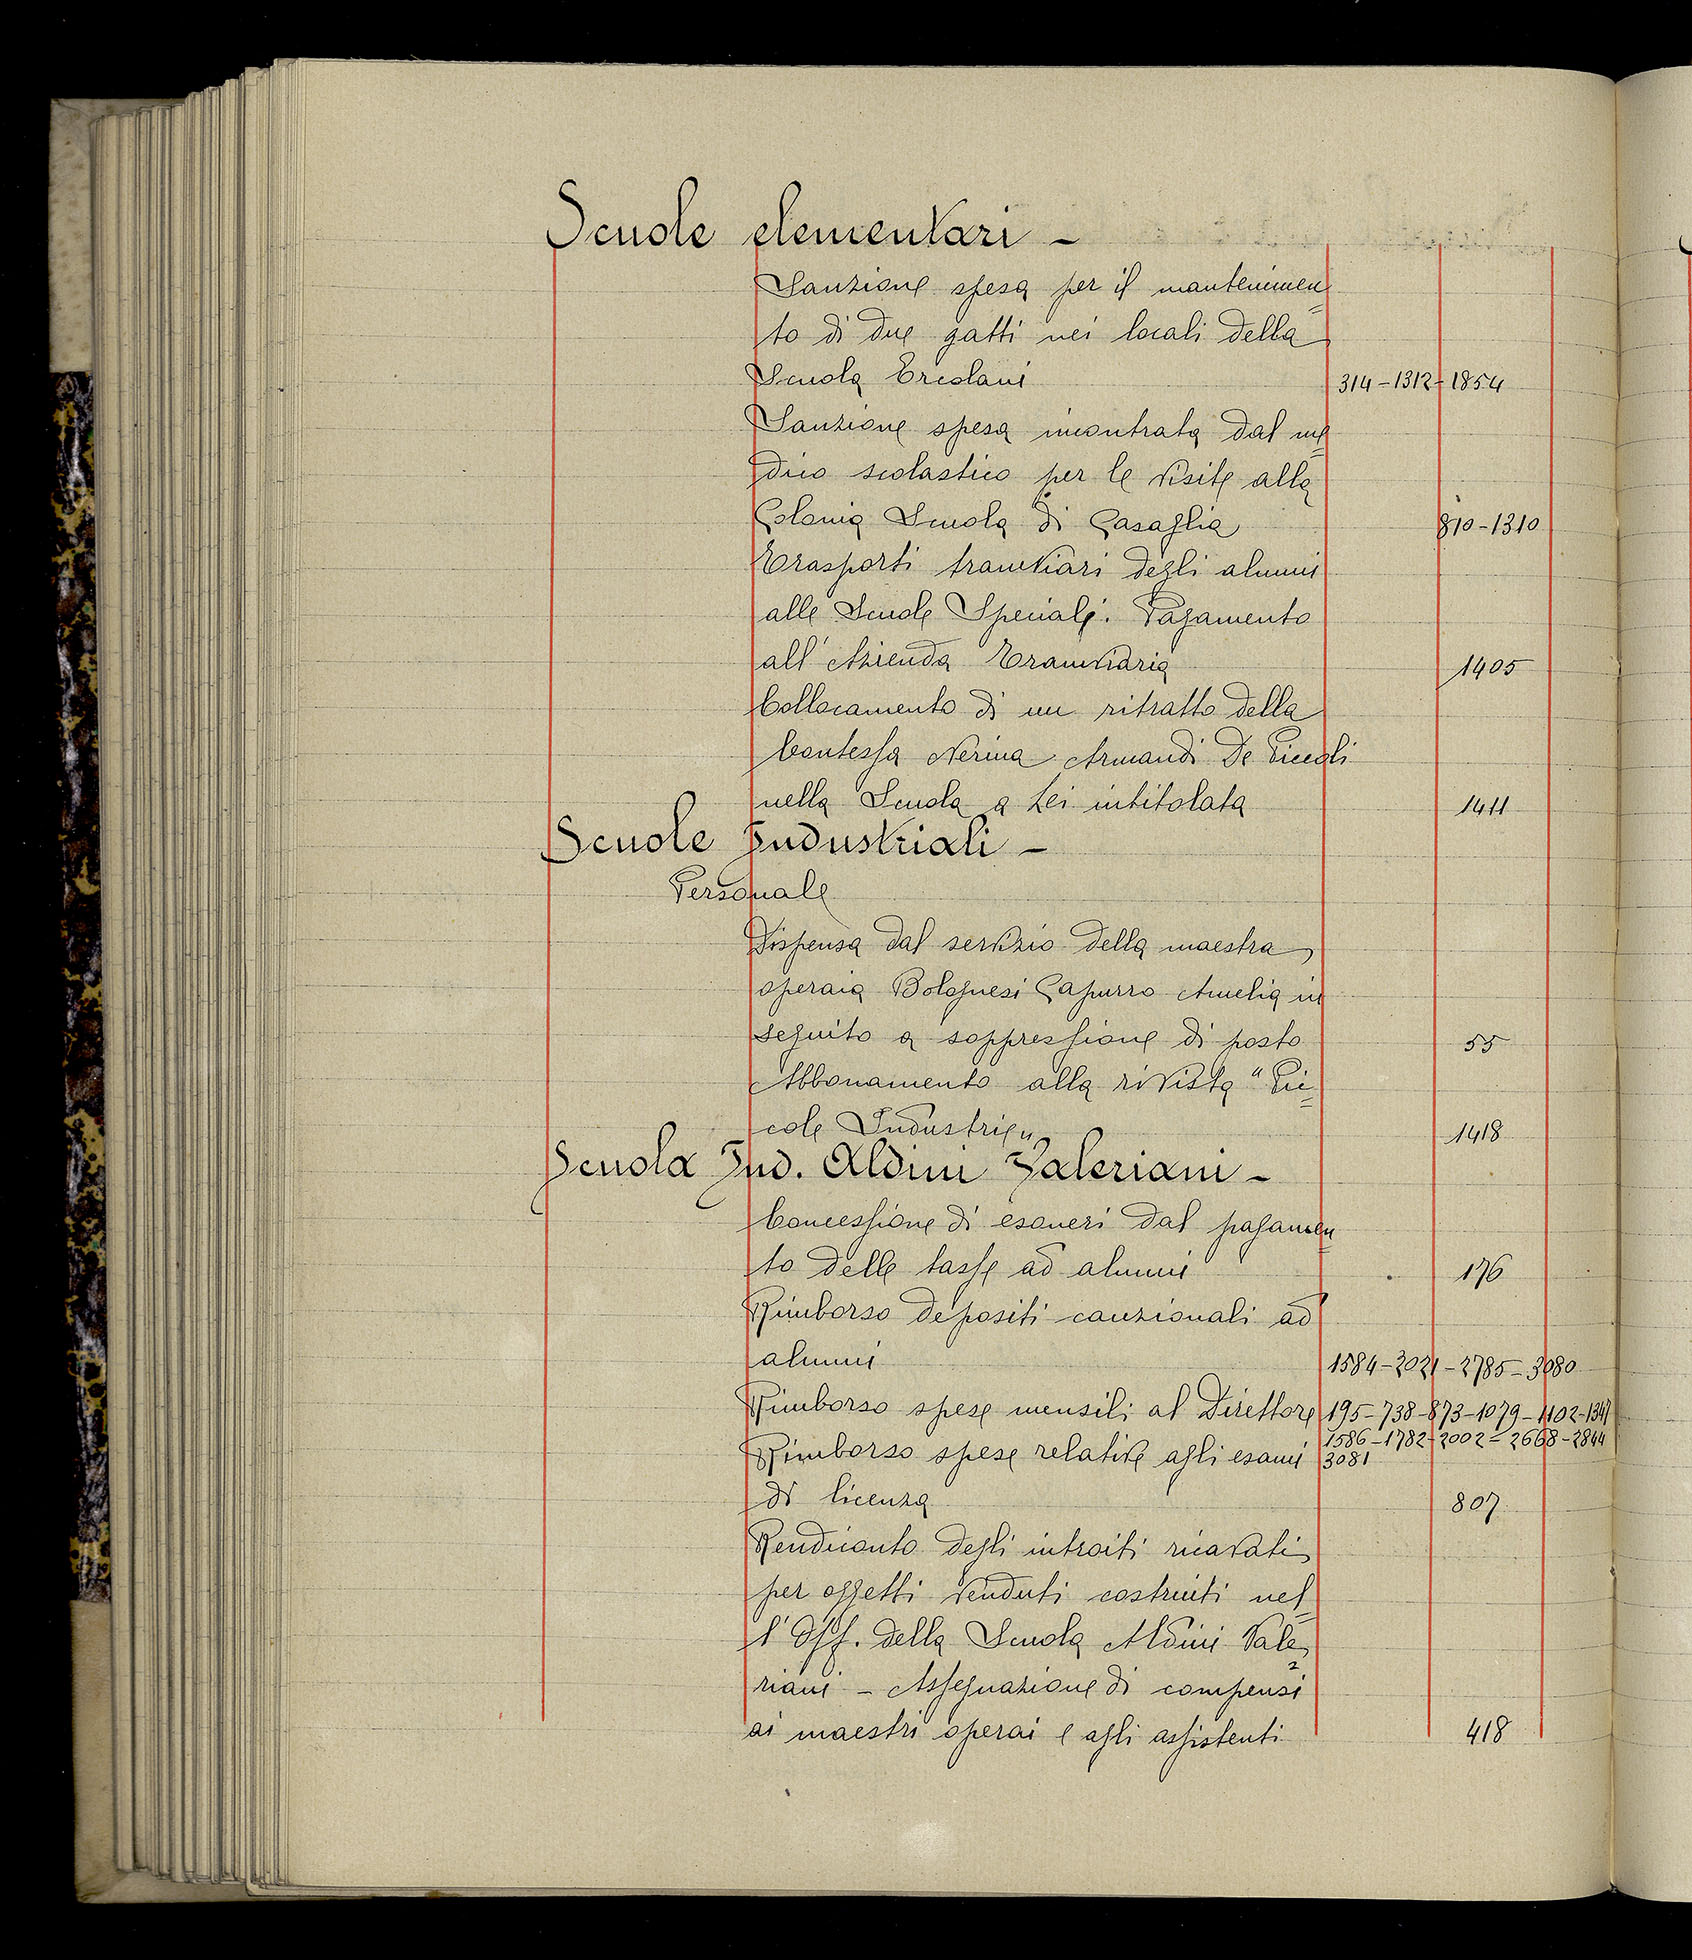 Scuole elementari -
Sanzione spesa per il mantenimen=
to di due gatti nei locali della
Scuola Ercolani 314-1312-1854
Sanzione spesa incontrata dal me=
dico scolastico per le visite alla
Colonia Scuola di Casaglia 810-1310
Trasporti tramviari degli alunni
alle Scuole Speciali. Pagamento
all'Azienda Tramviaria 1405
Collocamento di un ritratto della
Contessa Nerina Armandi De Piccoli
nella Scuola a Lei intitolata 1411
Scuole Industriali -
Personale
Dispensa dal servizio della maestra
operaia Bolognesi Capurro Amelia in
seguito a soppressione di posto 55
Abbonamento alla rivista "Pic=
cole Industrie" 1418
Scuola Ind. Aldini Valeriani -
Concessione di esoneri dal pagamen=
to delle tasse ad alunni 176
Rimborso depositi cauzionali ad
alunni 1584-2021-2785-3080
Rimborso spese mensili al Direttore 195-738-873-1079-1102-1347
1586-1782-2002-2668-2844
Rimborso spese relative agli esami 3081
di licenza 807
Rendiconto degli introiti ricavati
per oggetti venduti costruiti nel=
l'Off. della Scuola Aldini Vale=
riani - Assegnazione di compensi
ai maestri operai e agli assistenti 418